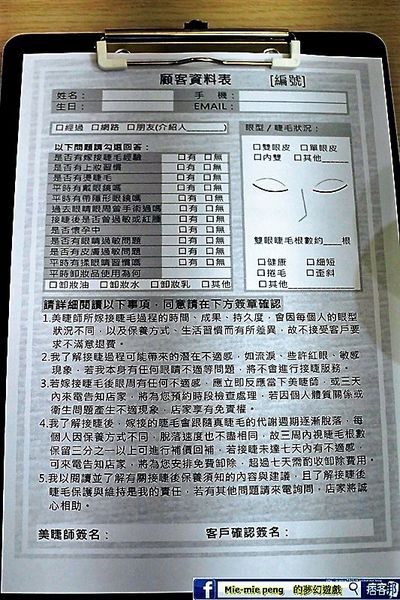 顧客資料表 [編號]
姓名： 手機：
生日： EMAIL：
□經過 □網路 □朋友(介紹人 )
眼型/睫毛狀況：
以下問題請勾選回答：
是否有嫁接睫毛經驗 □有 □無
是否有上妝習慣 □有 □無
是否有燙睫毛 □有 □無
平時有戴眼鏡嗎 □有 □無
平時有帶隱形眼鏡嗎 □有 □無
過去眼睛開周曾手術過嗎 □有 □無
接睫後是否曾過敏或紅腫 □有 □無
是否懷孕中 □有 □無
是否有眼睛過敏問題 □有 □無
是否有皮膚過敏問題 □有 □無
平時有揉眼睛習慣嗎 □有 □無
平時卸妝品使用為何
□卸妝油 □卸妝水 □卸妝乳 □其他
□雙眼皮 □單眼皮
□內雙 □其他
雙眼睫毛根數約 根
□健康 □細短
□捲毛 □歪斜
□其他
請詳細閱讀以下事項，同意請在下方簽章確認
1.美睫師所嫁接睫毛過程的時間、成果、持久度，會因每個人的眼型
狀況不同，以及保養方式、生活習慣而有所差異，故不接受客戶要
求不滿意退費。
2.我了解接睫過程可能帶來的潛在不適感，如流淚、些許紅眼、敏感
現象，若我本身有任何眼睛不適等問題，將不會進行接睫服務。
3.若嫁接睫毛後眼周有任何不適感，應立即反應當下美睫師，或三天
內來電告知店家，將為您預約時段檢查處理，若因個人體質關係或
衛生問題產生不適現象，店家享有免責權。
4.我了解接睫後，嫁接的睫毛會跟隨真睫毛的代謝週期逐漸脫落，每
個人因保養方式不同，脫落速度也不盡相同，故三周內視睫毛根數
保留三分之一以上可進行補價回補，若接睫未達七天內有不適感，
可來電告知店家，將為您安排免費卸除，超過七天需酌收卸除費用。
5.我以閱讀並了解有關接睫後保養須知的內容與建議，且了解接睫後
睫毛保護與維持是我的責任，若有其他問題請來電詢問，店家將誠
心相助。
美睫師簽名： 客戶確認簽名：
f Mie-mie peng 的夢幻遊戲 痞客邦